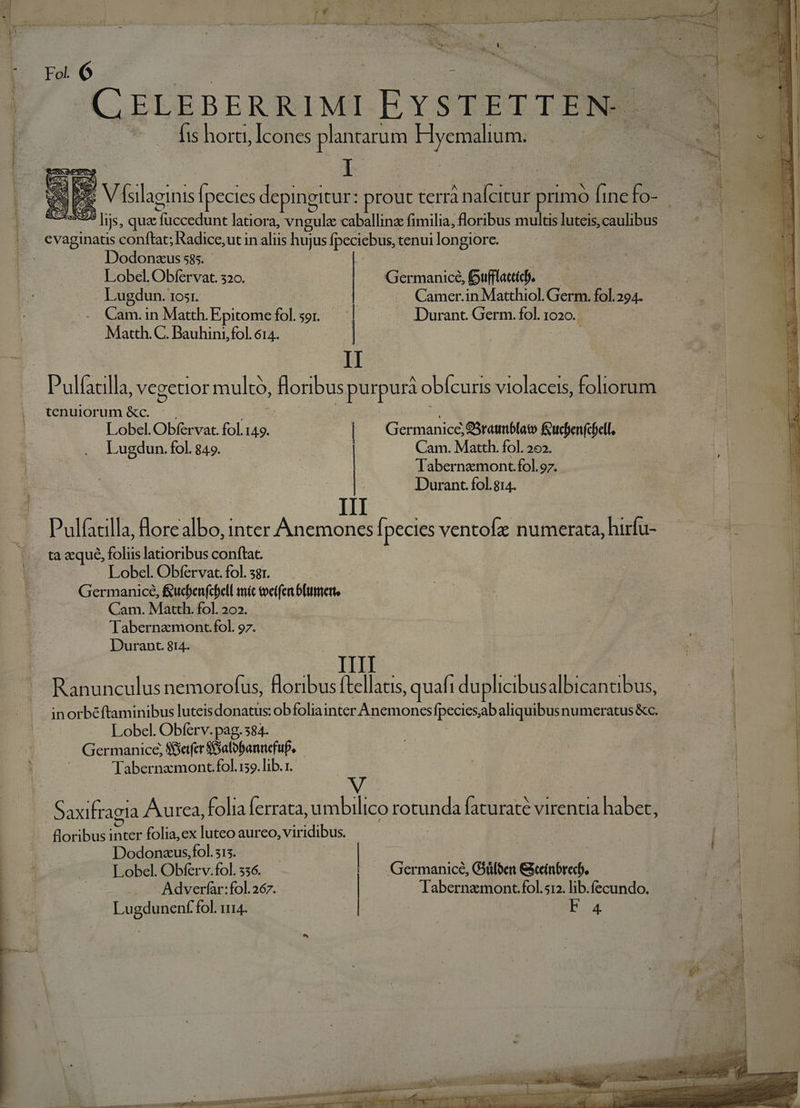 Fol. 6
CELEBERRIMI EYSTETTEN-
ſis horti, Icones plantarum Hyemalium.
I
TVſsilaginis ſpecies depingitur: prout terrâ naſcitur primò ſine fo-
lijs, quæ ſuccedunt latiora, vngulæ caballinæ ſimilia, floribus multis luteis, caulibus
evaginatis conſtat; Radice, ut in aliis hujus ſpeciebus, tenui longiore.
Dodonæus 585.
Lobel. Obſervat. 320.
Lugdun. 1051.
Cam. in Matth. Epitome fol. 591.
Matth. C. Bauhini, fol. 614.
Germanicè, Hufflattich.
Camer. in Matthiol. Germ. fol. 294.
Durant. Germ. fol. 1020.
II
Pulſatilla, vegetior multò, floribus purpurâ obſcuris violaceis, foliorum
tenuiorum &c.
Lobel. Obſervat. fol. 149.
Lugdun. fol. 849.
Germanicè, Braunblaw Kuchenſchell.
Cam. Matth. fol. 202.
Tabernæmont. fol. 97.
Durant. fol. 814.
III
Pulſatilla, flore albo, inter Anemones ſpecies ventoſæ numerata, hirſu-
ta æquè, foliis latioribus conſtat.
Lobel. Obſervat. fol. 381.
Germanicè, Kuchenſchell mit weiſen blumen.
Cam. Matth. fol. 202.
Tabernæmont. fol. 97.
Durant. 814.
IIII
Ranunculus nemoroſus, floribus ſtellatis, quaſi duplicibus albicantibus,
in orbē ſtaminibus luteis donatus: ob folia inter Anemones ſpecies, ab aliquibus numeratus &c.
Lobel. Obſerv. pag. 384.
Germanicè, Weiſer Waldhannefuß.
Tabernæmont. fol. 139. lib. 1.
V
Saxifragia Aurea, folia ſerrata, umbilico rotunda ſaturatè virentia habet,
floribus inter folia, ex luteo aureo, viridibus.
Dodonæus, fol. 315.
Lobel. Obſerv. fol. 336.
Adverſar: fol. 267.
Lugdunenſ. fol. 1114.
Germanicè, Gülden Steinbrech.
Tabernæmont. fol. 512. lib. ſecundo.
F 4